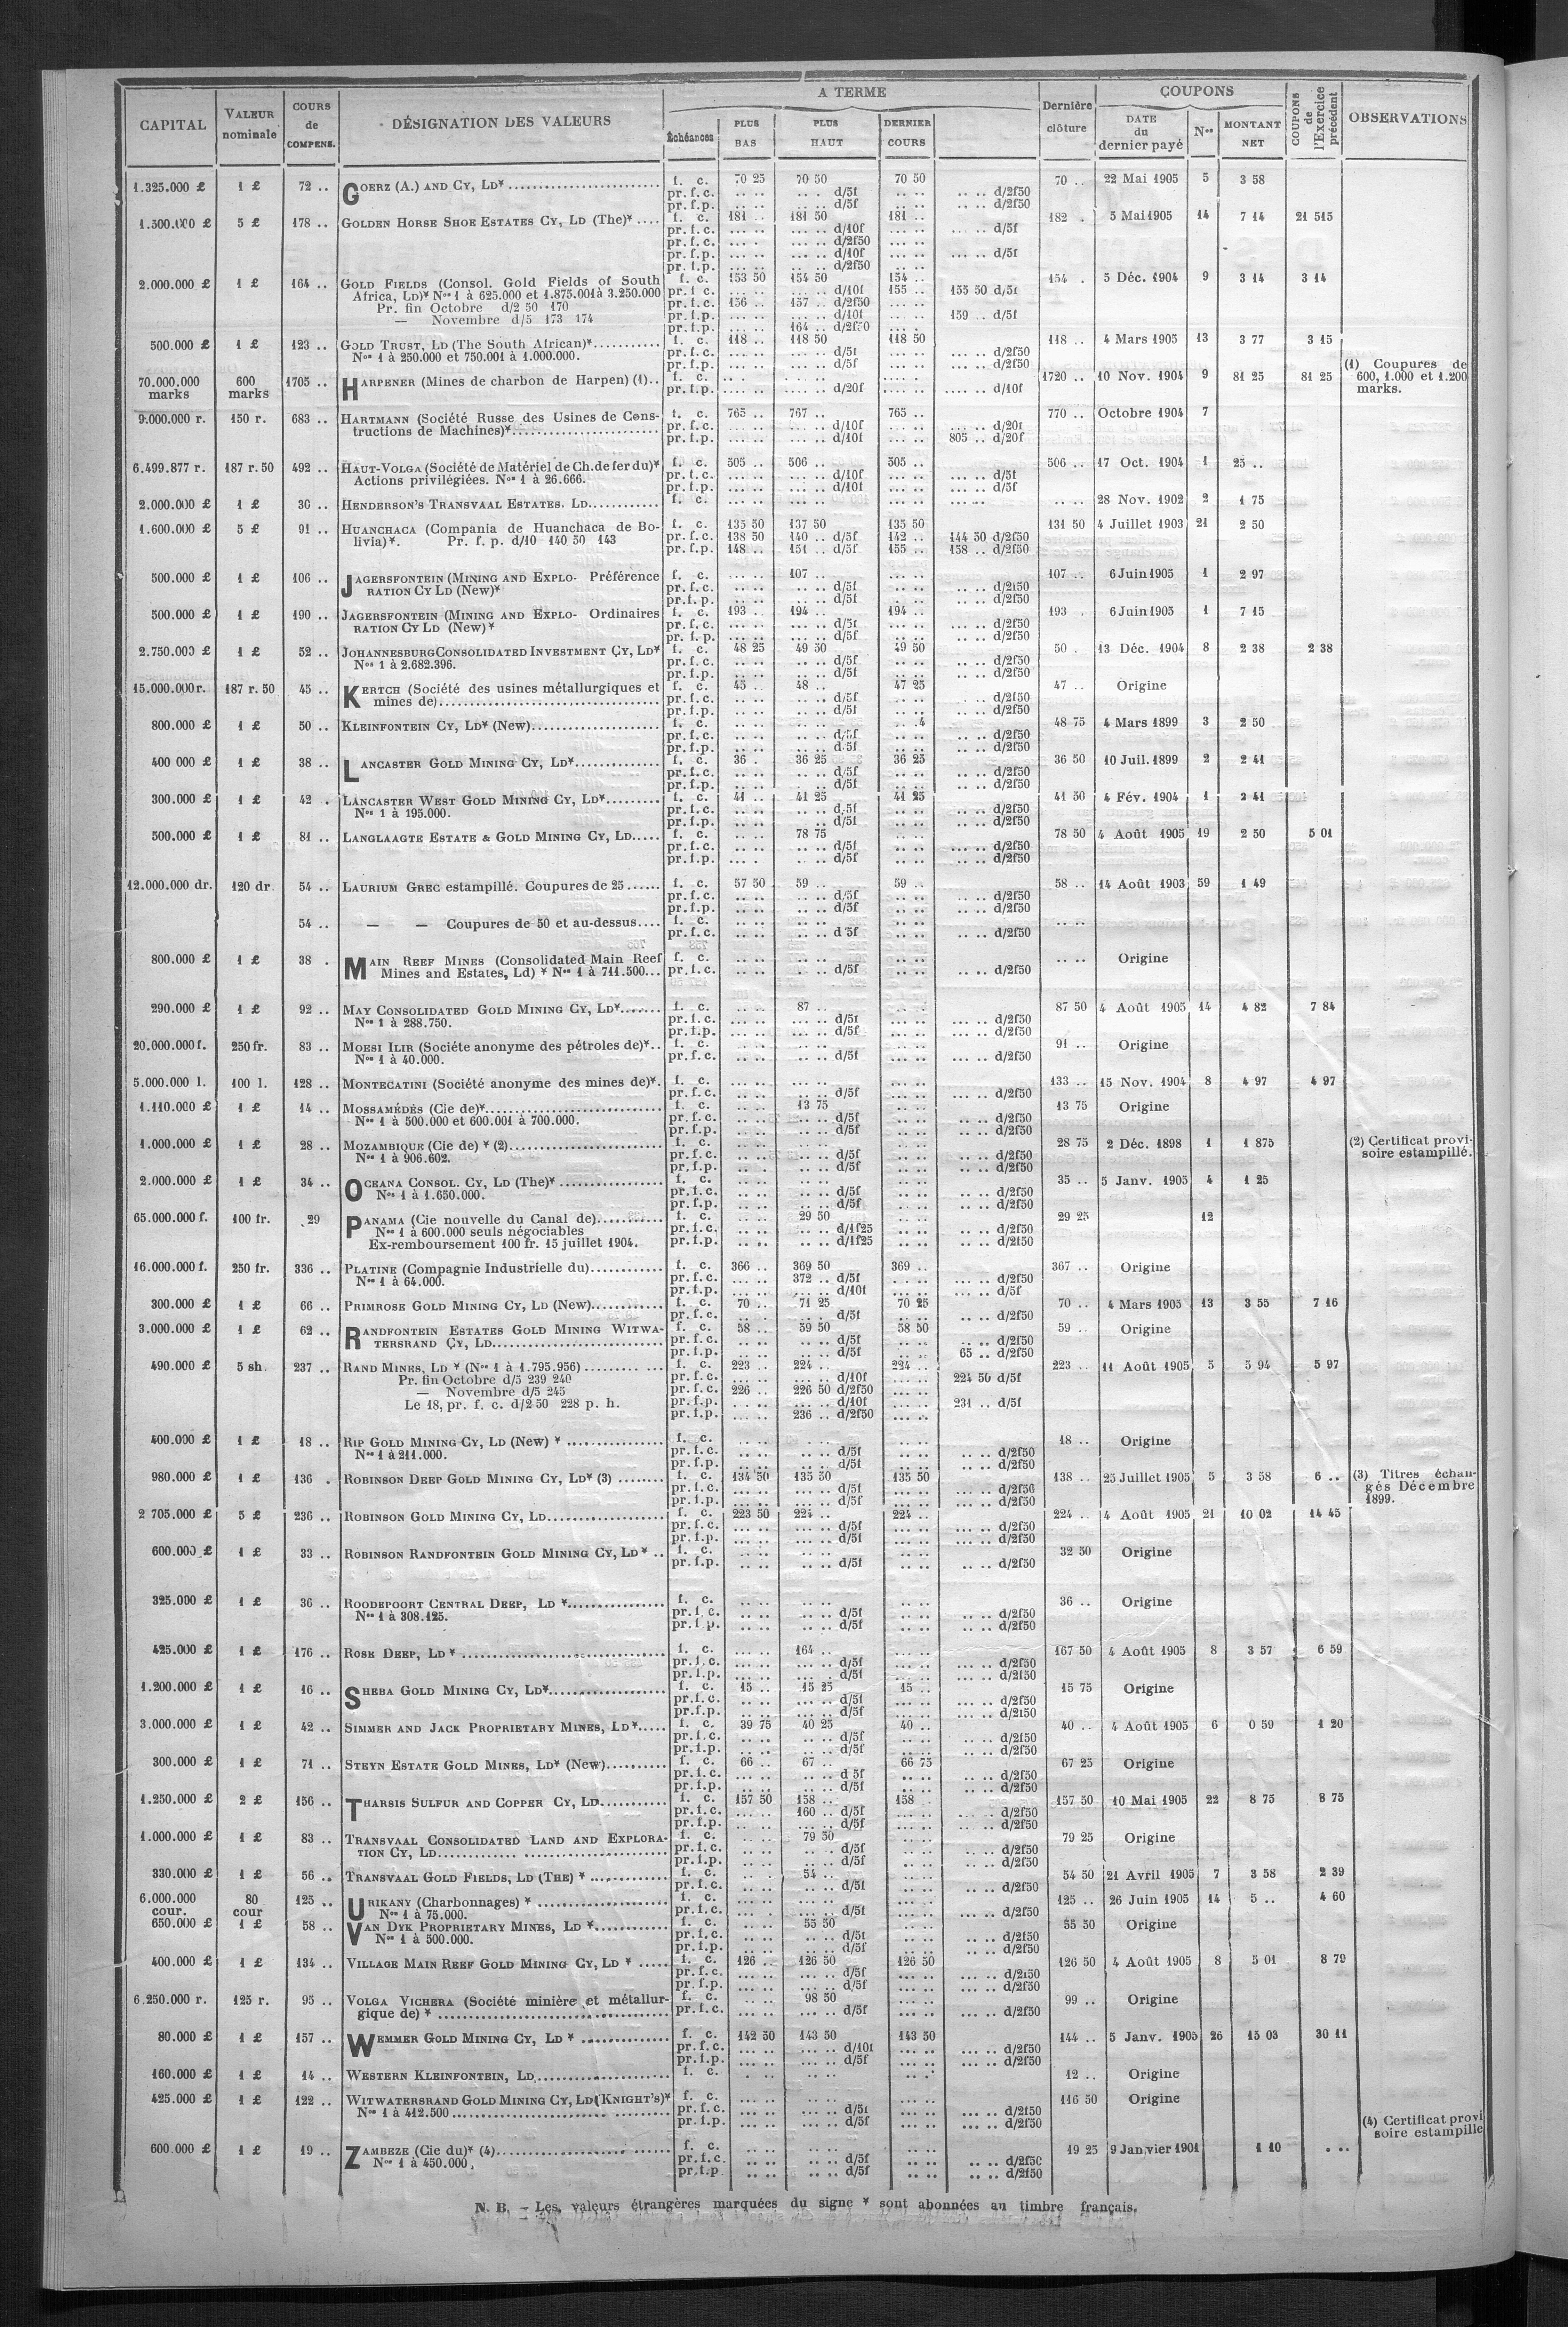 A TERME
COUPONS
CAPITAL VALEUR nominale COURS de COMPENS. DÉSIGNATION DES VALEURS Échéances PLUS BAS PLUS HAUT DERNIER COURS Dernière clôture DATE du dernier payé Nos MONTANT NET COUPONS de l'Exercice précédent OBSERVATIONS
1.325.000 £ 1 £ 72 .. GOERZ (A.) AND CY, LD* f. c. 70 25 70 50 70 50 70 .. 22 Mai 1905 5 3 58
pr. f. c. .. .. .. . d/5f .. .. .. .. d/2f50
pr. f. p. .. .. .. .. d/5f .. .. .. .. d/2f50
1.500.000 £ 5 £ 178 .. GOLDEN HORSE SHOE ESTATES CY, LD (The)* .... f. c. 181 .. 181 50 181 .. 182 . 5 Mai 1905 14 7 14 21 515
pr. f. c. .... .. .... .. d/10f .... .. .... .. d/5f
pr. f. c. .... .. .... .. d/2f50 .... ..
pr. f. p. .... .. .... .. d/10f .... .. .... .. d/5f
pr. f. p. .... .. .... .. d/2f50 .... ..
2.000.000 £ 1 £ 164 .. GOLD FIELDS (Consol. Gold Fields of South f. c. 153 50 154 50 154 .. 154 . 5 Déc. 1904 9 3 14 3 14
Africa, LD)* Nos 1 à 625.000 et 1.875.001 à 3.250.000 pr. f. c. .... .. .... .. d/10f 155 .. 155 50 d/5f
Pr. fin Octobre d/2 50 170 pr. f. c. 156 .. 157 .. d/2f50
— Novembre d/5 173 174 pr. f. p. .... .. .... .. d/10f .... .. 159 .. d/5f
pr. f. p. .... .. 164 .. d/2f50 .... .
500.000 £ 1 £ 123 .. GOLD TRUST, LD (The South African)* f. c. 118 .. 118 50 118 50 118 .. 4 Mars 1905 13 3 77 3 15
Nos 1 à 250.000 et 750.001 à 1.000.000. pr. f. c. .... .. .... .. d/5f .... .. .... .. d/2f50
pr. f. p. .... .. .... .. d/5f .... .. .... .. d/2f50
70.000.000 marks 600 marks 1705 .. HARPENER (Mines de charbon de Harpen) (1).. f. c. 1720 .. 10 Nov. 1904 9 81 25 81 25 (1) Coupures de 600, 1.000 et 1.200 marks.
pr. f. p. .... .. .... .. d/20f .... .. .... .. d/10f
9.000.000 r. 150 r. 683 .. HARTMANN (Société Russe des Usines de Cons- f. c. 765 .. 767 .. 765 .. 770 .. Octobre 1904 7
tructions de Machines)* pr. f. c. .... .. .... .. d/10f .... .. .... .. d/20f
pr. f. p. .... .. .... .. d/10f .... .. 805 .. d/20f
6.499.877 r. 187 r. 50 492 .. HAUT-VOLGA (Société de Matériel de Ch. de fer du)* f. c. 505 .. 506 .. 505 .. 506 .. 17 Oct. 1904 1 25 ..
Actions privilégiées. Nos 1 à 26.666. pr. f. c. .... .. .... .. d/10f .... .. .... .. d/5f
pr. f. p. .... .. .... .. d/10f .... .. .... .. d/5f
2.000.000 £ 1 £ 30 .. HENDERSON'S TRANSVAAL ESTATES. LD f. c. .... .. .... .. .... .. 28 Nov. 1902 2 1 75
1.600.000 £ 5 £ 91 .. HUANCHACA (Compania de Huanchaca de Bo- f. c. 135 50 137 50 135 50 131 50 4 Juillet 1903 21 2 50
livia)*. Pr. f. p. d/10 140 50 143 pr. f. c. 138 50 140 .. d/5f 142 .. 144 50 d/2f50
pr. f. p. 148 .. 151 .. d/5f 155 .. 158 .. d/2f50
500.000 £ 1 £ 106 .. JAGERSFONTEIN (MINING AND EXPLO- Préférence f. c. .... .. 107 .. .... .. 107 .. 6 Juin 1905 1 2 97
RATION CY LD (New)* pr. f. c. .... .. .... .. d/5f .... .. .... .. d/2f50
pr. f. p. .... .. .... .. d/5f .... .. .... .. d/2f50
500.000 £ 1 £ 190 .. JAGERSFONTEIN (MINING AND EXPLO- Ordinaires f. c. 193 .. 194 .. 194 .. 193 . 6 Juin 1905 1 7 15
RATION CY LD (New)* pr. f. c. .... .. .... .. d/5f .... .. .... .. d/2f50
pr. f. p. .... .. .... .. d/5f .... .. .... .. d/2f50
2.750.000 £ 1 £ 52 .. JOHANNESBURG CONSOLIDATED INVESTMENT CY, LD* f. c. 48 25 49 50 49 50 50 . 13 Déc. 1904 8 2 38 2 38
Nos 1 à 2.682.396. pr. f. c. .. .. .. .. d/5f .. .. .. .. d/2f50
pr. f. p. .. .. .. .. d/5f .. .. .. .. d/2f50
15.000.000 r. 187 r. 50 45 .. KERTCH (Société des usines métallurgiques et f. c. 45 . 48 .. 47 25 47 .. Origine
mines de) pr. f. c. .. .. .. .. d/5f .. .. .. .. d/2f50
pr. f. p. .. .. .. .. d/5f .. .. .. .. d/2f50
800.000 £ 1 £ 50 .. KLEINFONTEIN CY, LD* (New) f. c. .. .. .. .. .. .4 48 75 4 Mars 1899 3 2 50
pr. f. c. .. .. .. .. d/5f .. .. .. .. d/2f50
pr. f. p. .. .. .. .. d.5f .. .. .. .. d/2f50
400 000 £ 1 £ 38 .. LANCASTER GOLD MINING CY, LD* f. c. 36 . 36 25 36 25 36 50 10 Juil. 1899 2 2 41
pr. f. c. .. .. .. .. d/5f .. .. .. .. d/2f50
pr. f. p. .. .. .. .. d/5f .. .. .. .. d/2f50
300.000 £ 1 £ 42 . LANCASTER WEST GOLD MINING CY, LD* f. c. 41 .. 41 25 41 25 41 50 4 Fév. 1904 1 2 41
Nos 1 à 195.000. pr. f. c. .. .. .. .. d/5f .. .. .. .. d/2f50
pr. f. p. .. .. .. .. d/5f .. .. .. .. d/2f50
500.000 £ 1 £ 81 .. LANGLAAGTE ESTATE & GOLD MINING CY, LD..... f. c. .. .. 78 75 .. .. 78 50 4 Août 1905 19 2 50 5 01
pr. f. c. .. .. .. .. d/5f .. .. .. .. d/2f50
pr. f. p. .. .. .. .. d/5f .. .. .. .. d/2f50
12.000.000 dr. 120 dr. 54 .. LAURIUM GREC estampillé. Coupures de 25 ...... f. c. 57 50 59 .. 59 .. 58 .. 14 Août 1903 59 1 49
pr. f. c. .. .. .. .. d/5f .. .. .. .. d/2f50
pr. f. p. .. .. .. .. d/5f .. .. .. .. d/2f50
54 .. — — Coupures de 50 et au-dessus.... f. c. .. .. .. .. .. .. .. ..
pr. f. c. .. .. .. .. d 5f .. .. .. .. d/2f50
800.000 £ 1 £ 38 . MAIN REEF MINES (Consolidated Main Reef f. c. .. .. .. .. .. .. .. .. Origine
Mines and Estates, Ld) * Nos 1 à 711.500... pr. f. c. .. .. .. .. d/5f .. .. .. .. d/2f50
290.000 £ 1 £ 92 .. MAY CONSOLIDATED GOLD MINING CY, LD* f. c. .. .. 87 .. .. .. 87 50 4 Août 1905 14 4 82 7 84
Nos 1 à 288.750. pr. f. c. .... .. .... .. d/5f .... .. .... .. d/2f50
pr. f. p. .... .. .... .. d/5f .... .. .... .. d/2f50
20.000.000 f. 250 fr. 83 .. MOESI ILIR (Sociéte anonyme des pétroles de)*.. f. c. .. .. .. .. .. .. 91 .. Origine
Nos 1 à 40.000. pr. f. c. .... .. .... .. d/5f .... .. .... .. d/2f50
5.000.000 l. 100 l. 128 .. MONTECATINI (Société anonyme des mines de)*. f. c. .... .. .... .. .... .. 133 .. 15 Nov. 1904 8 4 97 4 97
pr. f. c. .. .. .. .. d/5f .. .. .. .. d/2f50
1.110.000 £ 1 £ 14 .. MOSSAMÉDÈS (Cie de)* f. c. .. .. 13 75 .. .. 13 75 Origine
Nos 1 à 500.000 et 600.001 à 700.000. pr. f. c. .. .. .. .. d/5f .. .. .. .. d/2f50
pr. f. p. .. .. .. .. d/5f .. .. .. .. d/2f50
1.000.000 £ 1 £ 28 .. MOZAMBIQUE (Cie de) * (2) f. c. .. .. .. .. .. .. 28 75 2 Déc. 1898 1 1 875 (2) Certificat provi- soire estampillé.
Nos 1 à 906.602. pr. f. c. .. .. .. .. d/5f .. .. .. .. d/2f50
pr. f. p. .. .. .. .. d/5f .. .. .. .. d/2f50
2.000.000 £ 1 £ 34 .. OCEANA CONSOL. CY, LD (The)* f. c. .. .. .. .. .. .. 35 .. 5 Janv. 1905 4 1 25
Nos 1 à 1.650.000. pr. f. c. .. .. .. .. d/5f .. .. .. .. d/2f50
pr. f. p. .. .. .. .. d/5f .. .. .. .. d/2f50
65.000.000 f. 100 fr. 29 PANAMA (Cie nouvelle du Canal de) f. c. .. .. 29 50 .. .. 29 25 12
Nos 1 à 600.000 seuls négociables pr. f. c. .. .. .. .. d/1f25 .. .. .. .. d/2f50
Ex-remboursement 100 fr. 15 juillet 1904. pr. f. p. .. .. .. .. d/1f25 .. .. .. .. d/2f50
16.000.000 f. 250 fr. 336 .. PLATINE (Compagnie Industrielle du) f. c. 366 .. 369 50 369 .. 367 .. Origine
Nos 1 à 64.000. pr. f. c. .... .. 372 .. d/5f .. .. .... .. d/2f50
pr. f. p. .... .. .... .. d/10f .... .. .... .. d/5f
300.000 £ 1 £ 66 .. PRIMROSE GOLD MINING CY, LD (New) f. c. 70 .. 71 25 70 25 70 .. 4 Mars 1905 13 3 55 7 16
pr. f. c. .. .. .. .. d/5f .. .. .. .. d/2f50
3.000.000 £ 1 £ 62 .. RANDFONTEIN ESTATES GOLD MINING WITWA- f. c. 58 .. 59 50 58 50 59 .. Origine
TERSRAND CY, LD pr. f. c. .. .. .. .. d/5f .. .. .. .. d/2f50
pr. f. p. .. .. .. .. d/5f .. .. 65 .. d/2f50
490.000 £ 5 sh. 237 .. RAND MINES, LD * (Nos 1 à 1.795.956) f. c. 223 .. 224 .. 224 .. 223 .. 11 Août 1905 5 5 94 5 97
Pr. fin Octobre d/5 239 240 pr. f. c. .... .. .... .. d/10f .... .. 224 50 d/5f
— Novembre d/5 245 pr. f. c. 226 .. 226 50 d/2f50 .... ..
Le 18, pr. f. c. d/2 50 228 p. h. pr. f. p. .. .. .... .. d/10f .... .. 231 .. d/5f
pr. f. p. .... .. 236 .. d/2f50 .... ..
400.000 £ 1 £ 18 .. RIP GOLD MINING CY, LD (New) * f. c. .. .. .. .. .. .. 18 .. Origine
Nos 1 à 211.000. pr. f. c. .. .. .. .. d/5f .. .. .. .. d/2f50
pr. f. p. .. .. .. .. d/5f .. .. .. .. d/2f50
980.000 £ 1 £ 136 . ROBINSON DEEP GOLD MINING CY, LD* (3) f. c. 134 50 135 50 135 50 138 .. 25 Juillet 1905 5 3 58 6 .. (3) Titres échan- gés Décembre 1899.
pr. f. c. .... .. .... .. d/5f .... .. .... .. d/2f50
pr. f. p. .... .. .... .. d/5f .... .. .... .. d/2f50
2 705.000 £ 5 £ 236 .. ROBINSON GOLD MINING CY, LD f. c. 223 50 224 .. 224 .. 224 .. 4 Août 1905 21 10 02 14 45
pr. f. c. .... .. .... .. d/5f .... .. .... .. d/2f50
pr. f. p. .... .. .... .. d/5f .... .. .... .. d/2f50
600.000 £ 1 £ 33 .. ROBINSON RANDFONTEIN GOLD MINING CY, LD* .. f. c. .. .. .. .. .. .. 32 50 Origine
pr. f. p. .. .. .. .. d/5f .. .. .. .. d/2f50
325.000 £ 1 £ 36 .. ROODEPOORT CENTRAL DEEP, LD * f. c. .. .. .. .. .. .. 36 .. Origine
Nos 1 à 308.125. pr. f. c. .. .. .. .. d/5f .. .. .. .. d/2f50
pr. f. p. .. .. .. .. d/5f .. .. .. .. d/2f50
425.000 £ 1 £ 176 .. ROSE DEEP, LD * f. c. .... .. 164 .. .... .. 167 50 4 Août 1905 8 3 57 6 59
pr. f. c. .... .. .... .. d/5f .... .. .... .. d/2f50
pr. f. p. .... .. .... .. d/5f .... .. .... .. d/2f50
1.200.000 £ 1 £ 16 .. SHEBA GOLD MINING CY, LD* f. c. 15 .. 15 25 15 .. 15 75 Origine
pr. f. c. .. .. .. .. d/5f .. .. .. .. d/2f50
pr. f. p. .. .. .. .. d/5f .. .. .. .. d/2f50
3.000.000 £ 1 £ 42 .. SIMMER AND JACK PROPRIETARY MINES, LD*..... f. c. 39 75 40 25 40 .. 40 .. 4 Août 1905 6 0 59 1 20
pr. f. c. .. .. .. .. d/5f .. .. .. .. d/2f50
pr. f. p. .. .. .. .. d/5f .. .. .. .. d/2f50
300.000 £ 1 £ 71 .. STEYN ESTATE GOLD MINES, LD* (New) f. c. 66 .. 67 .. 66 75 67 25 Origine
pr. f. c. .. .. .. .. d 5f .. .. .. .. d/2f50
pr. f. p. .. .. .. .. d/5f .. .. .. .. d/2f50
1.250.000 £ 2 £ 156 .. THARSIS SULFUR AND COPPER CY, LD f. c. 157 50 158 .. 158 .. 157 50 10 Mai 1905 22 8 75 8 75
pr. f. c. .... .. 160 .. d/5f .... .. .... .. d/2f50
pr. f. p. .... .. .... .. d/5f .... .. .... .. d/2f50
1.000.000 £ 1 £ 83 .. TRANSVAAL CONSOLIDATED LAND AND EXPLORA- f. c. .. .. 79 50 .. .. 79 25 Origine
TION CY, LD pr. f. c. .. .. .. . d/5f .. .. .. .. d/2f50
pr. f. p. .. .. .. .. d/5f .. .. .. .. d/2f50
330.000 £ 1 £ 56 .. TRANSVAAL GOLD FIELDS, LD (THE) * f. c. .. . 54 .. .. .. 54 50 21 Avril 1905 7 3 58 2 39
pr. f. c. .. .. .. .. d/5f .. .. .. .. d/2f50
6.000.000 cour. 80 cour 125 .. URIKANY (Charbonnages) * f. c. .... .. .... .. .... .. 125 .. 26 Juin 1905 14 5 .. 4 60
Nos 1 à 75.000. pr. f. c. .... .. .... .. d/5f .... .. .... .. d/2f50
650.000 £ 1 £ 58 .. VAN DYK PROPRIETARY MINES, LD * f. c. .. .. 55 50 .. .. 55 50 Origine
Nos 1 à 500.000. pr. f. c. .. .. .. .. d/5f .. .. .. .. d/2f50
pr. f. p. .. .. .. .. d/5f .. .. .. .. d/2f50
400.000 £ 1 £ 134 .. VILLAGE MAIN REEF GOLD MINING CY, LD * ..... f. c. 126 .. 126 50 126 50 126 50 4 Août 1905 8 5 01 8 79
pr. f. c. .... .. .... .. d/5f .... .. .... .. d/2f50
pr. f. p. .... .. .... .. d/5f .... .. .... .. d/2f50
6.250.000 r. 125 r. 95 .. VOLGA VICHERA (Société minière et métallur- f. c. .. .. 98 50 .. .. 99 .. Origine
gique de) * pr. f. c. .... .. .... .. d/5f .... .. .... .. d/2f50
80.000 £ 1 £ 157 .. WEMMER GOLD MINING CY, LD * f. c. 142 50 143 50 143 50 144 .. 5 Janv. 1905 26 15 03 30 11
pr. f. c. .... .. .... .. d/10f .... .. .... .. d/2f50
pr. f. p. .... .. .... .. d/5f .... .. .... .. d/2f50
160.000 £ 1 £ 14 .. WESTERN KLEINFONTEIN, LD f. c. . .. .. .. .. . 12 .. Origine
425.000 £ 1 £ 122 .. WITWATERSRAND GOLD MINING CY, LD (KNIGHT'S)* f. c. .. .. .. .. .. .. 116 50 Origine
Nos 1 à 412.500 pr. f. c. .... .. .... .. d/5f .... .. .... .. d/2f50
pr. f. p. .... .. .... .. d/5f .... .. .... .. d/2f50
600.000 £ 1 £ 19 .. ZAMBEZE (Cie du)* (4) f. c. .. .. .. .. .. .. 19 25 9 Janvier 1901 1 10 . .. (4) Certificat provi soire estampille
Nos 1 à 450.000. pr. f. c. .. .. .. .. d/5f .. .. .. .. d/2f50
pr. f. p. .. .. .. .. d/5f .. .. .. .. d/2f50
N. B. — Les valeurs étrangères marquées du signe * sont abonnées au timbre français.